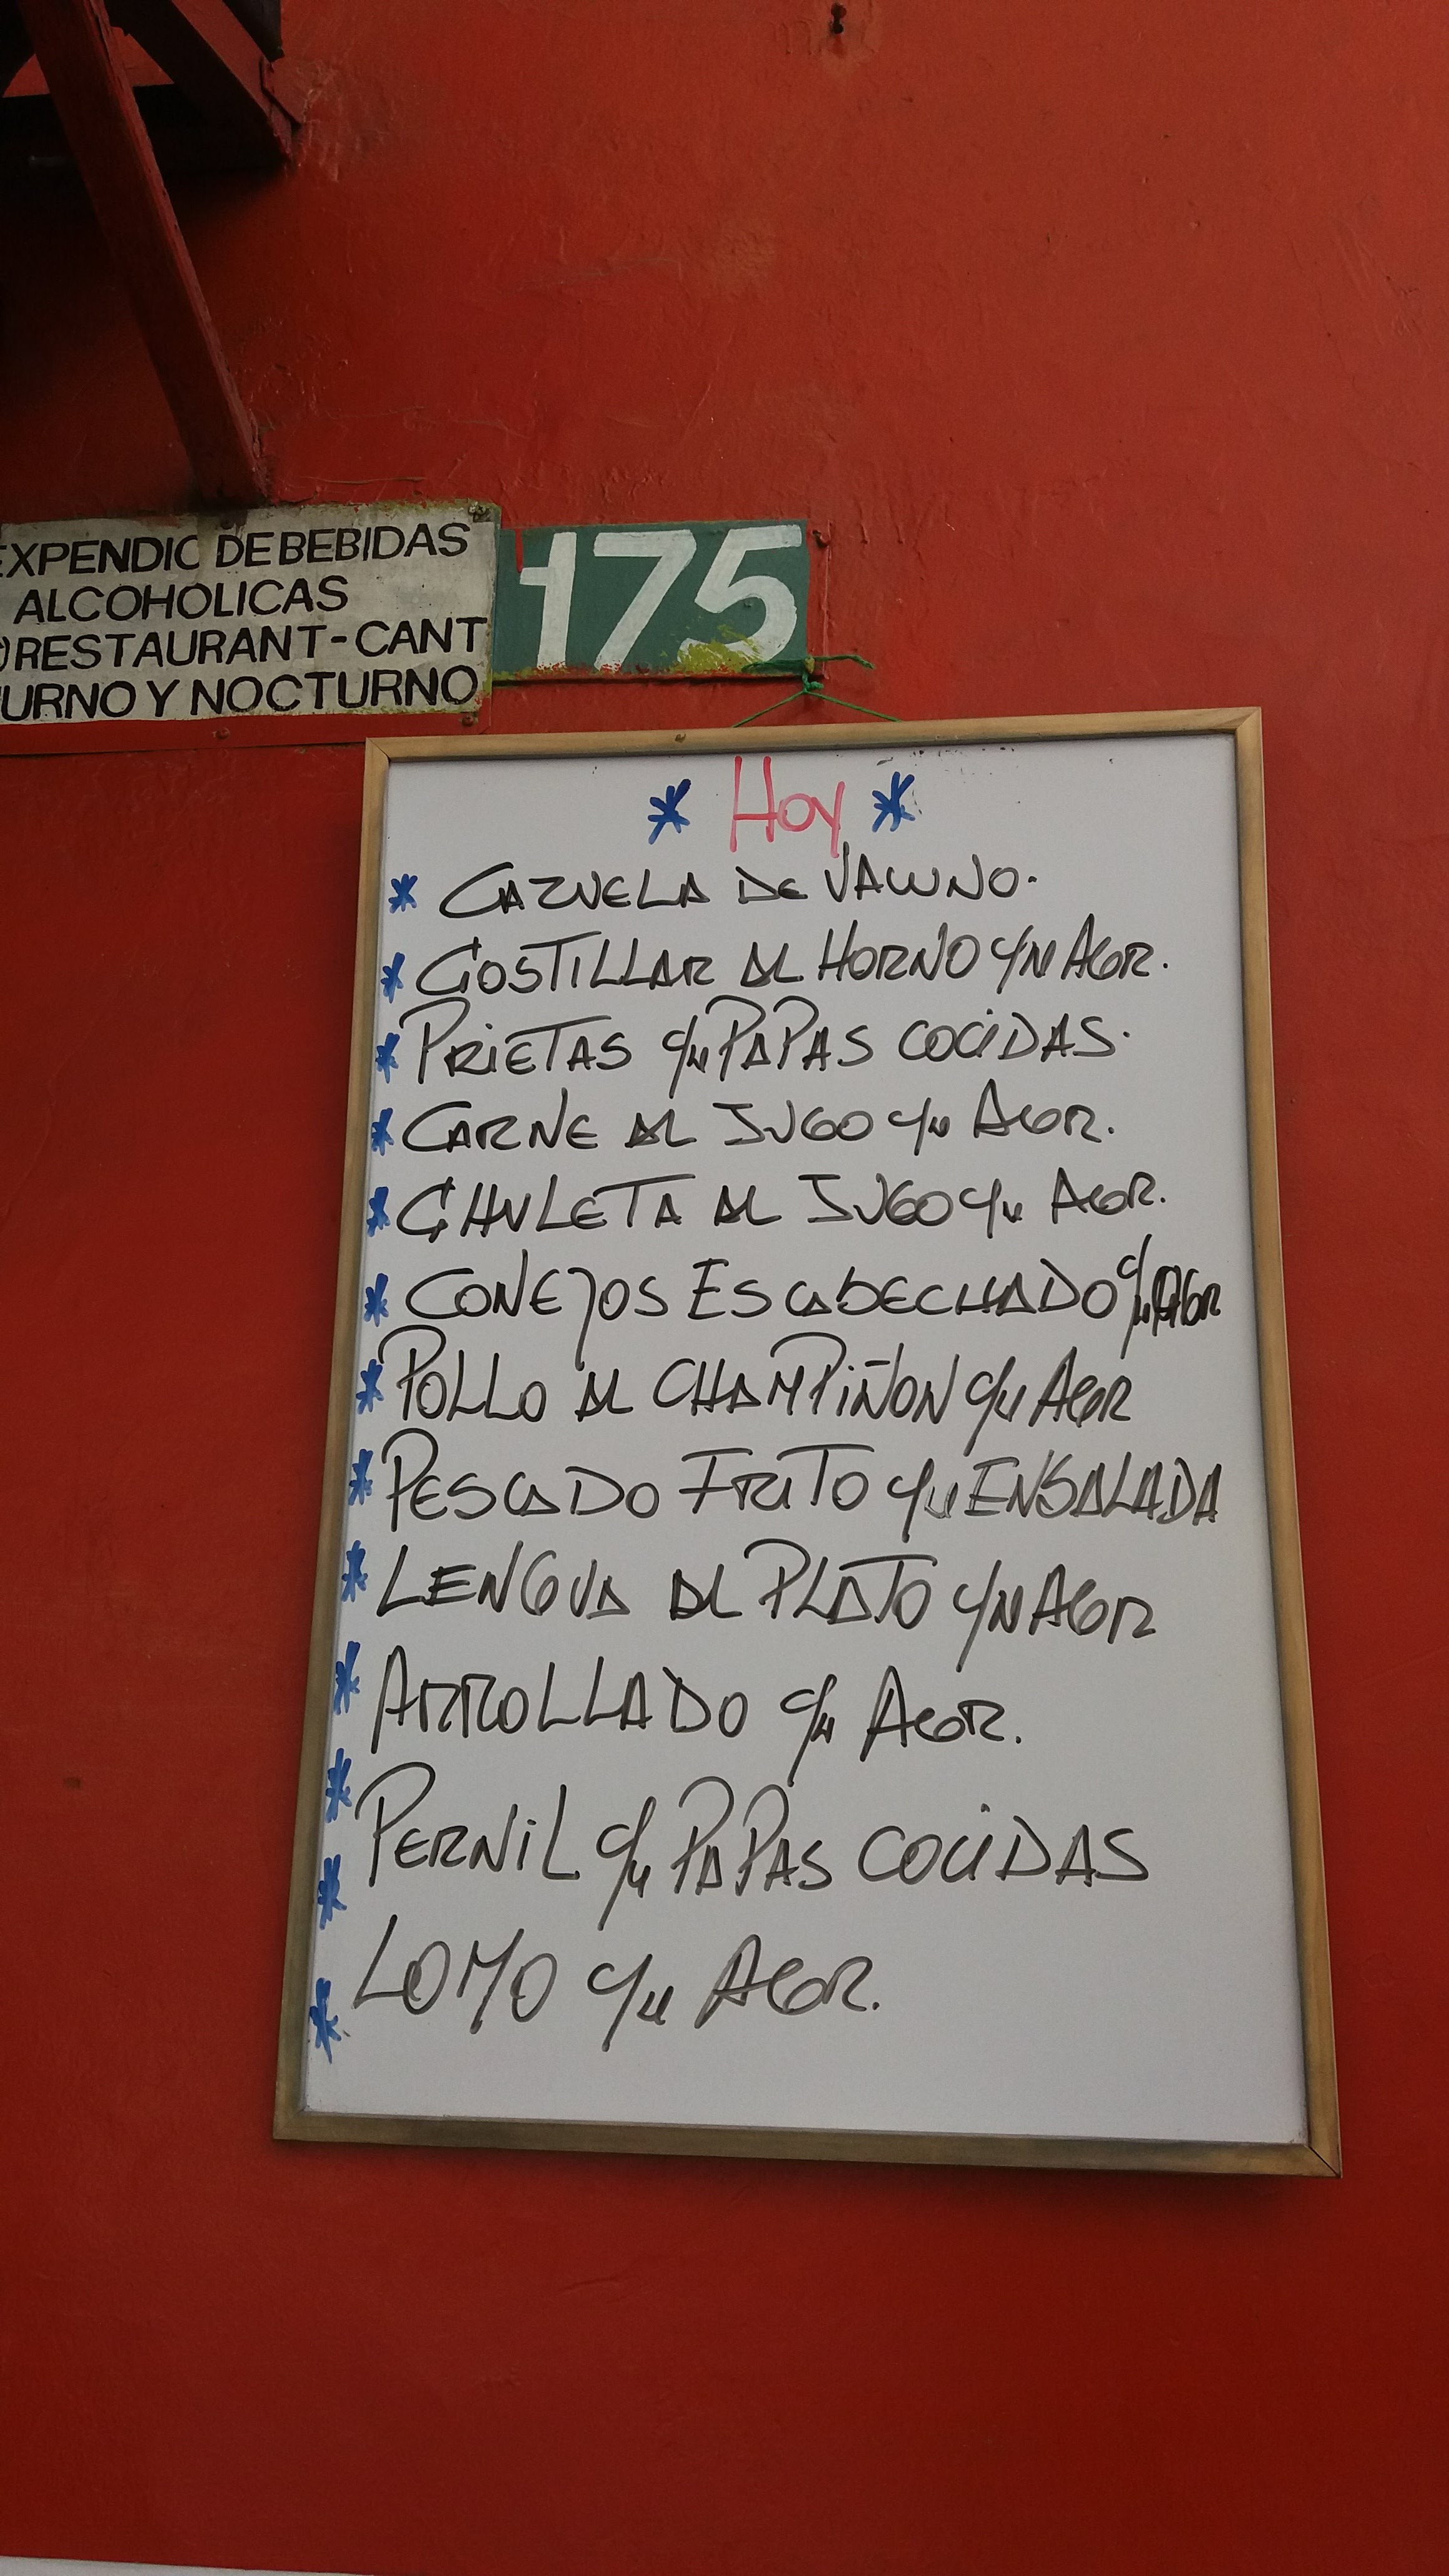 EXPENDIO DE BEBIDAS
ALCOHOLICAS
)RESTAURANT-CANT
URNO Y NOCTURNO
175
* Hoy *
* CAZUELA DE VACUNO.
* COSTILLAR AL HORNO C/N AGR.
* PRIETAS C/N PAPAS COCIDAS.
* CARNE AL JUGO C/N AGR.
* CHULETA AL JUGO C/N AGR.
* CONEJOS ESCABECHADO C/N AGR
* POLLO AL CHAMPIÑON C/N AGR
* PESCADO FRITO C/N ENSALADA
* LENGUA AL PLATO C/N AGR
* ARROLLADO C/N AGR.
* PERNIL C/N PAPAS COCIDAS
* LOMO C/N AGR.
*